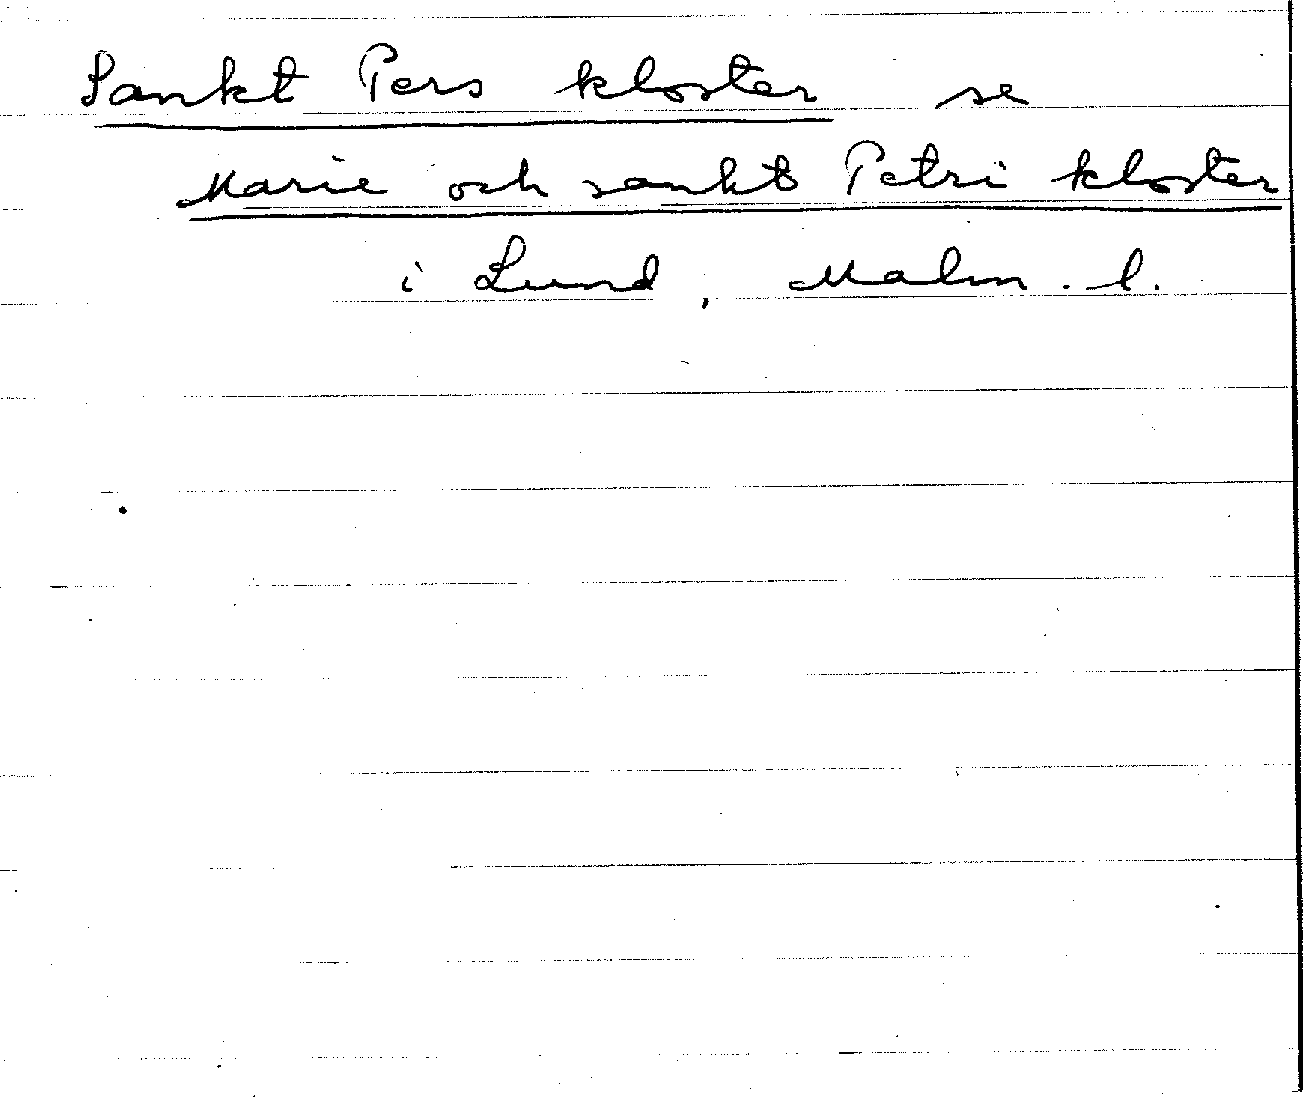 Sankt Pers kloster se
Marie och sankt Petri kloster
i Lund, Malm. l.